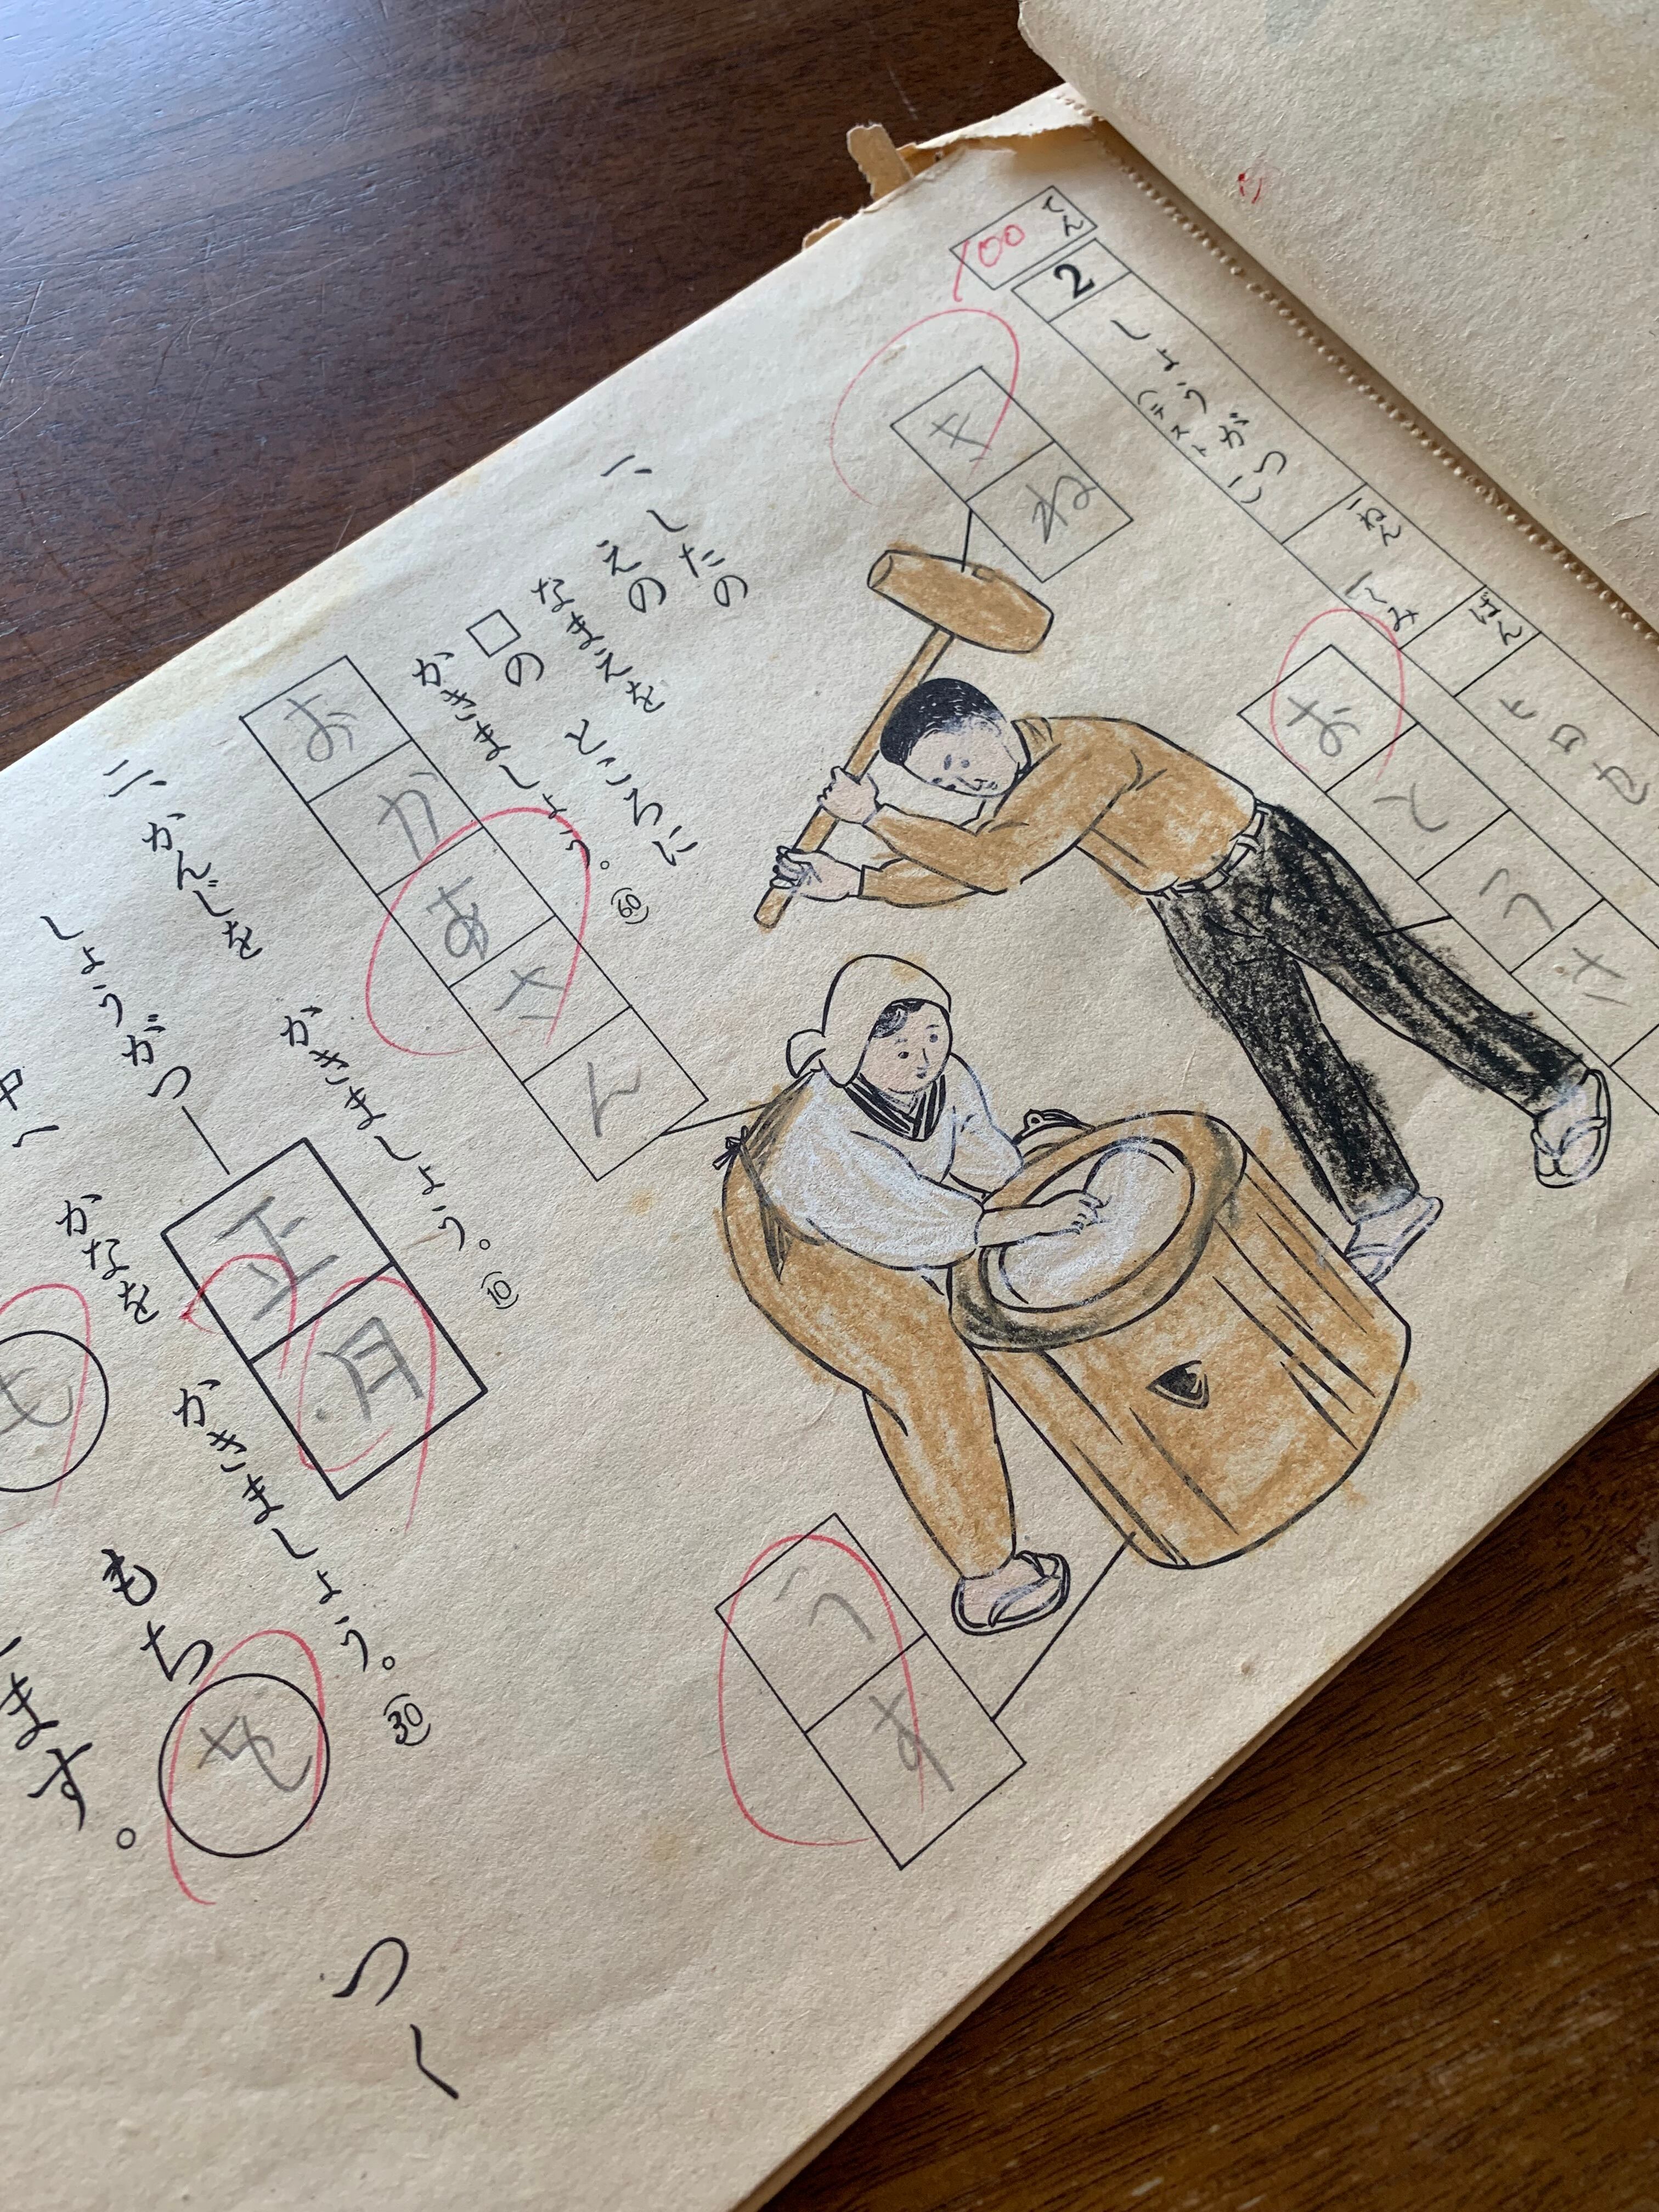 てん 100
2 しょうがつ
(テスト一)
ねん
くみ
ばん
きね
おとうさ
一、したの
えの
なまえを
□の ところに
かきましょう。(60)
おかあさん
うす
二、かんじを かきましょう。(10)
しょうがつ 正月
かなを かきましょう。(30)
もちを つ
ます。